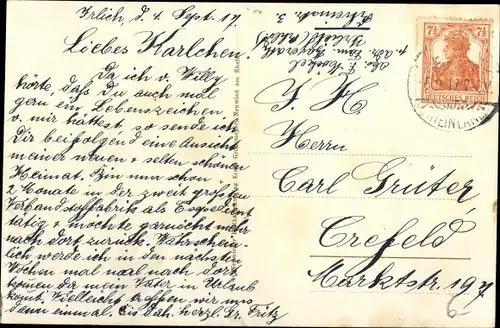 Irlich, d. 4. Sept. 17.
Liebes Karlchen!
Da ich v. Willy
hörte, daß Du auch mal
gern ein Lebenszeichen
v. mir hättest, so sende ich
Dir beifolgend eine Ansicht
meiner neuen + selten schönen
Heimat. Bin nun schon
2 Monate in der zweit größten
Verbandstoffabrik als Expedient
tätig + möchte garnicht mehr
nach dort zurück. Wahrschein-
lich werde ich in den nächsten
Wochen mal nach dort
kommen da mein Vater in Urlaub
kommt. Vielleicht treffen wir uns
dann einmal. Bis dah. herzl. Gr. Fritz
Abs. F.
p. Adr.
Irlich
3.
7½
DEUTSCHES REICH
RHEINLAND
Neuwied am Rhein
Herrn
Carl Grüter
Crefeld
Marktstr. 197
6